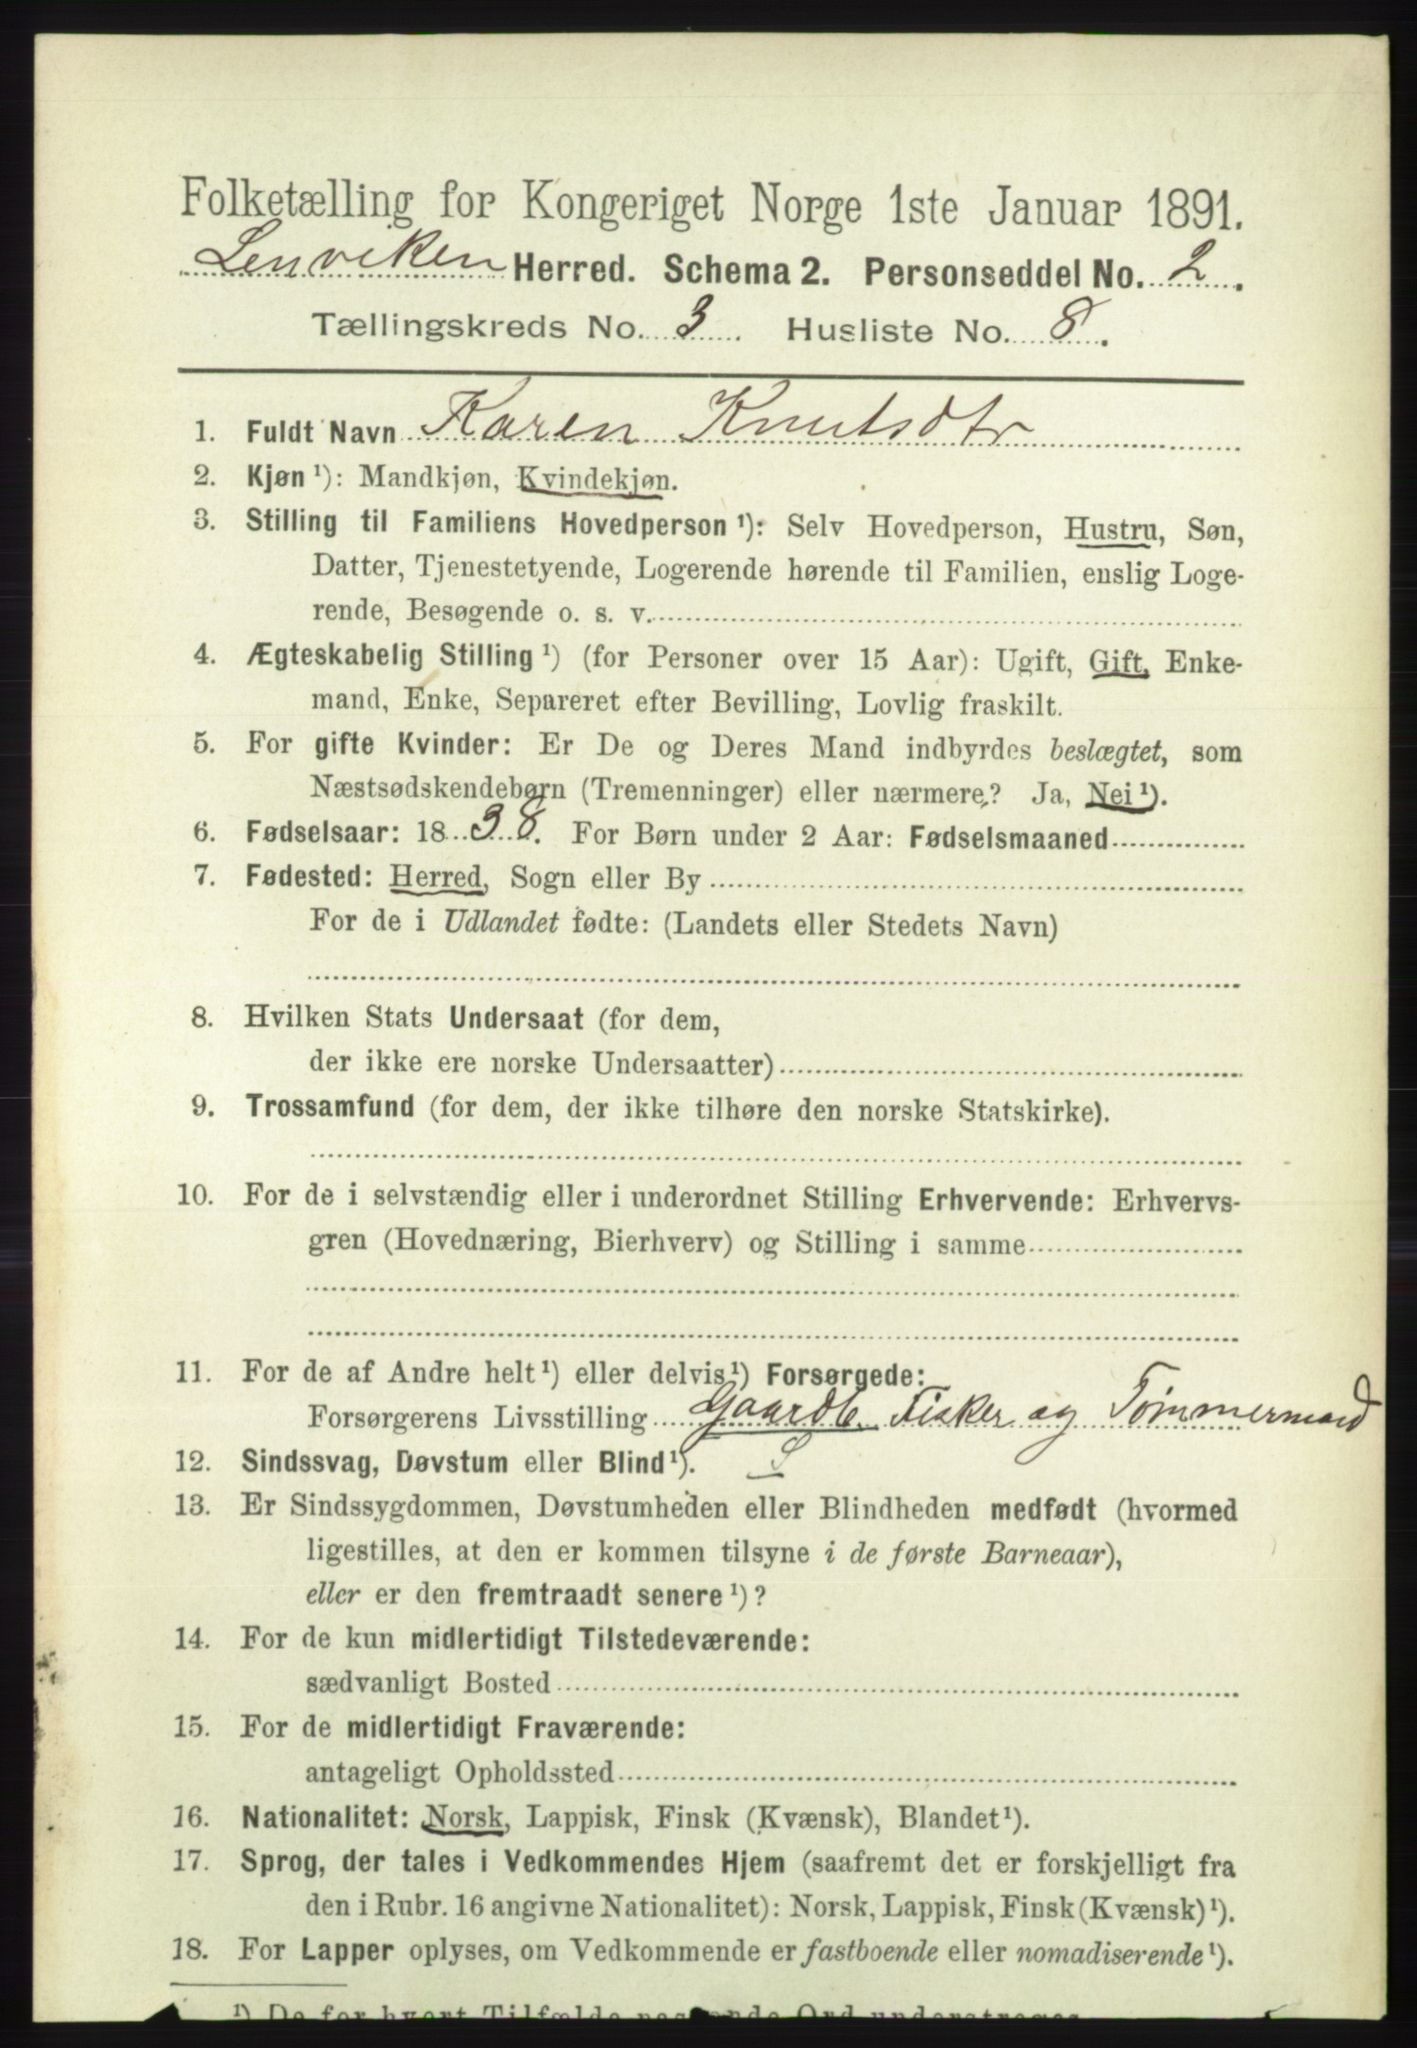 Folketælling for Kongeriget Norge 1ste Januar 1891.
Lenviken Herred. Schema 2. Personseddel No. 2.
Tællingskreds No. 3. Husliste No. 8.
1. Fuldt Navn Karen Knutsdtr
2. Kjøn ¹): Mandkjøn, Kvindekjøn.
3. Stilling til Familiens Hovedperson ¹): Selv Hovedperson, Hustru, Søn,
Datter, Tjenestetyende, Logerende hørende til Familien, enslig Loge-
rende, Besøgende o. s. v.
4. Ægteskabelig Stilling ¹) (for Personer over 15 Aar): Ugift, Gift, Enke-
mand, Enke, Separeret efter Bevilling, Lovlig fraskilt.
5. For gifte Kvinder: Er De og Deres Mand indbyrdes beslægtet, som
Næstsødskendebørn (Tremenninger) eller nærmere? Ja, Nei ¹).
6. Fødselsaar: 1838. For Børn under 2 Aar: Fødselsmaaned
7. Fødested: Herred, Sogn eller By
For de i Udlandet fødte: (Landets eller Stedets Navn)
8. Hvilken Stats Undersaat (for dem,
der ikke ere norske Undersaatter)
9. Trossamfund (for dem, der ikke tilhøre den norske Statskirke).
10. For de i selvstændig eller i underordnet Stilling Erhvervende: Erhvervs-
gren (Hovednæring, Bierhverv) og Stilling i samme
11. For de af Andre helt ¹) eller delvis ¹) Forsørgede:
Forsørgerens Livsstilling Gaardb. Fisker og Tømmermand
12. Sindssvag, Døvstum eller Blind ¹). S
13. Er Sindssygdommen, Døvstumheden eller Blindheden medfødt (hvormed
ligestilles, at den er kommen tilsyne i de første Barneaar),
eller er den fremtraadt senere ¹)?
14. For de kun midlertidigt Tilstedeværende:
sædvanligt Bosted
15. For de midlertidigt Fraværende:
antageligt Opholdssted
16. Nationalitet: Norsk, Lappisk, Finsk (Kvænsk), Blandet ¹).
17. Sprog, der tales i Vedkommendes Hjem (saafremt det er forskjelligt fra
den i Rubr. 16 angivne Nationalitet): Norsk, Lappisk, Finsk (Kvænsk) ¹).
18. For Lapper oplyses, om Vedkommende er fastboende eller nomadiserende ¹).
¹) De for hvert Tilfælde passende Ord understreges.